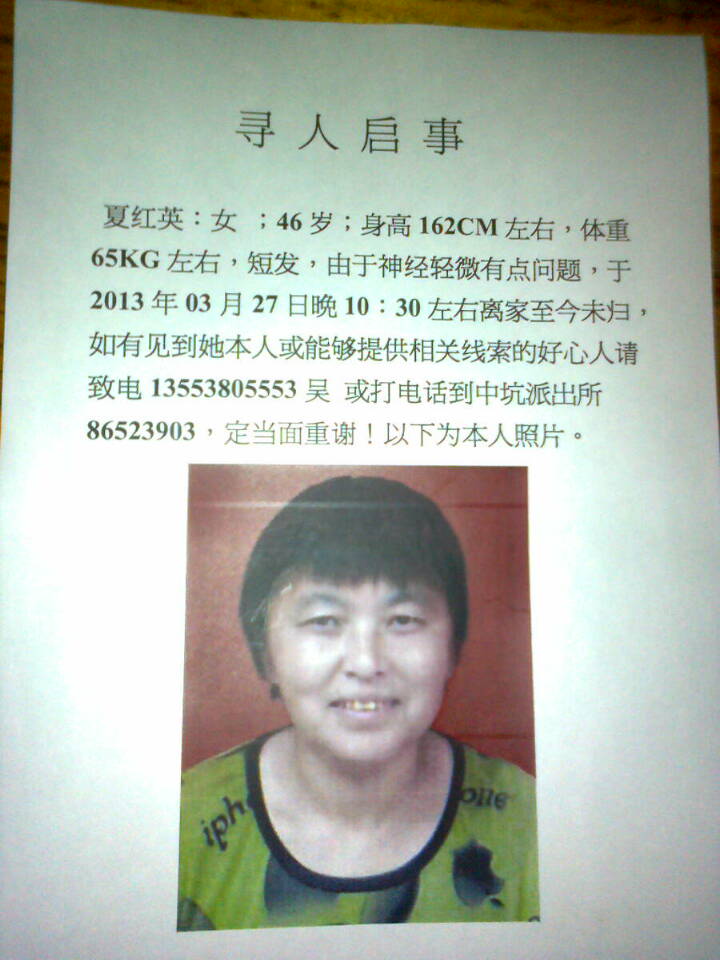 寻人启事
夏红英：女 ；46岁；身高162CM左右，体重
65KG左右，短发，由于神经轻微有点问题，于
2013年03月27日晚10：30左右离家至今未归，
如有见到她本人或能够提供相关线索的好心人请
致电13553805553吴 或打电话到中坑派出所
86523903，定当面重谢！以下为本人照片。
iph
olle